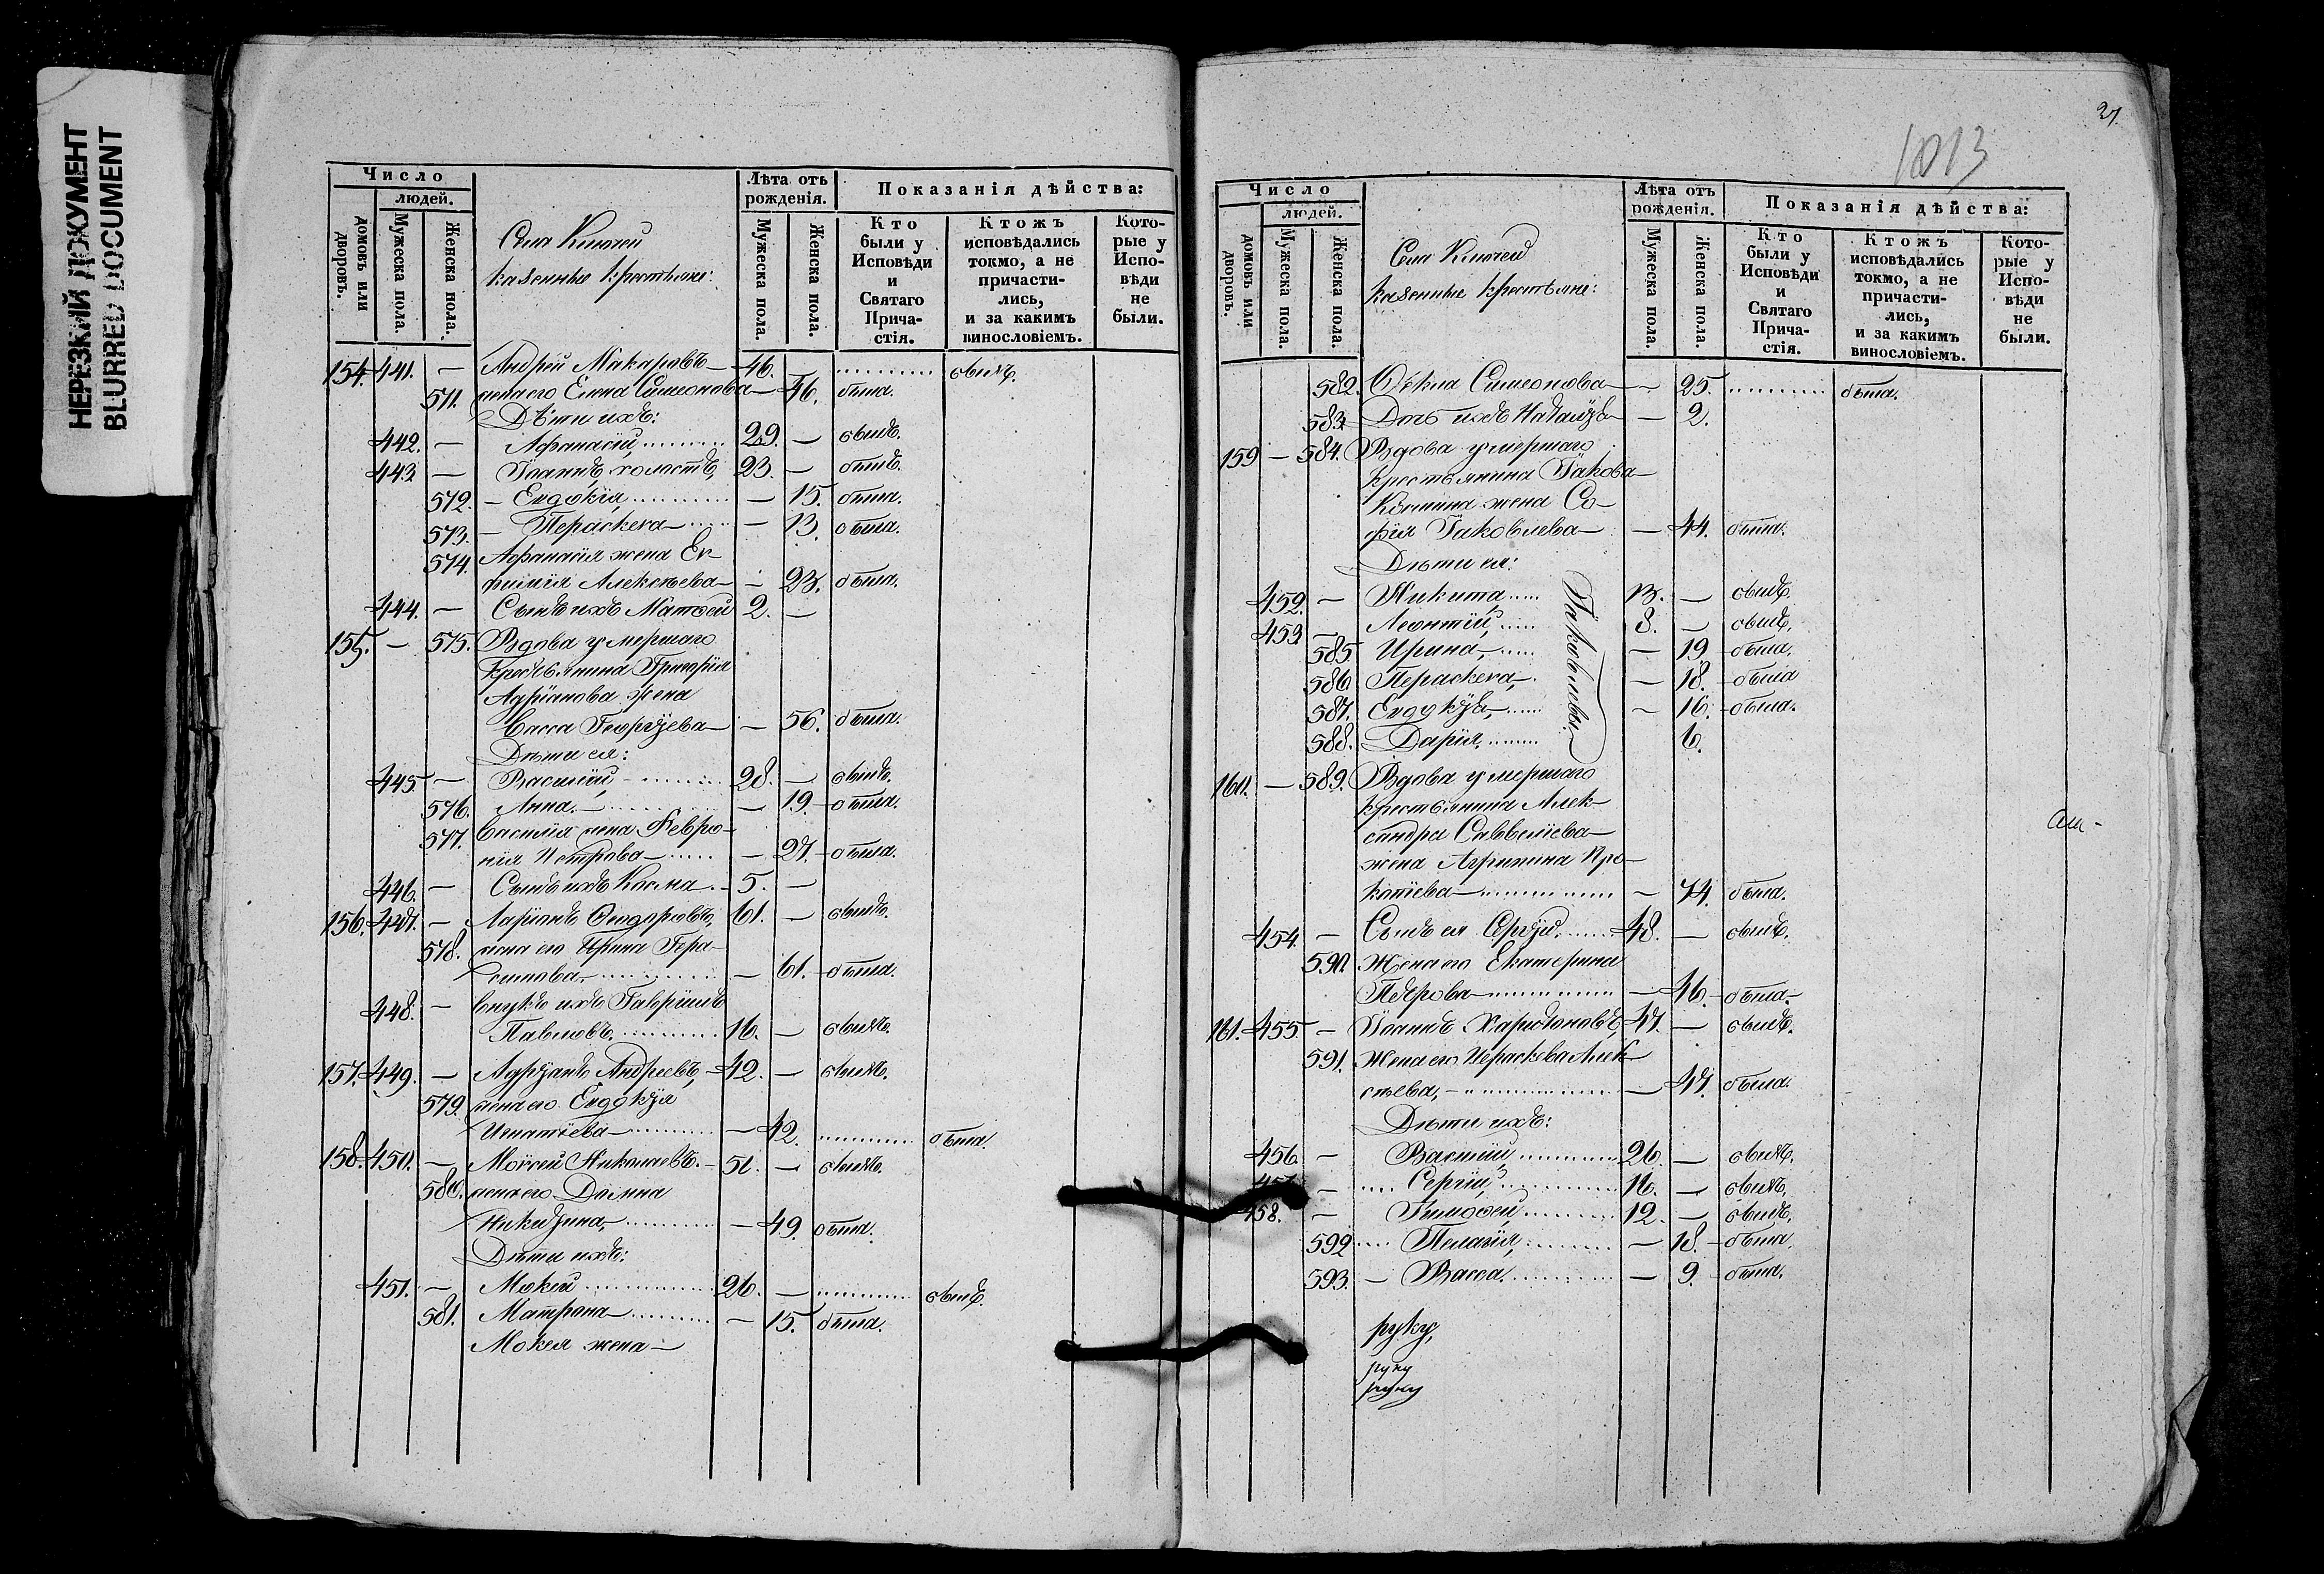 НЕРЕЗКИЙ ДОКУМЕНТ
BLURRED DOCUMENT
Число
людей.
домовъ или дворовъ.
Мужеска пола.
Женска пола.
Села Ключей
казенные крестьяне:
Лѣта отъ рожденія.
Мужеска пола.
Женска пола.
Показанія дѣйства:
Кто были у Исповѣди и Святаго Прича-стія.
Ктожъ исповѣдались токмо, а не причасти-лись, и за какимъ винословіемъ.
Кото-рые у Испо-вѣди не были.
154. 441. — Андрей Макаровъ — 46. — ........... былъ.
571. жена его Елена Симеонова — 46. была.
Дѣти ихъ:
442. — Афанасій, ......... 29. — былъ.
443 — Іоаннъ холостъ, 23. — былъ.
572. — Евдокія, ........... — 15. была.
573. — Параскева — ...... — 13. была.
574. Афанасія жена Ев-
фимія Алексѣева — — 23. была.
444. — Сынъ ихъ Матѳей 2. —
155. — 575. Вдова умершаго
Крестьянина Григорія
Адріанова жена
Васса Георгіева — — 56. была.
Дѣти ея:
445 — Василій, — ......... 28. — былъ.
576. Анна. — ........... — 19. — была.
577. Василія жена Февро-
нія Петрова — ...... — 27. — была.
446. — Сынъ ихъ Косма. — 5. —
156. 447. — Ларіонъ Ѳеодоровъ, 61. — былъ.
578. жена его Ирина Гера-
симова, — ........... — 61. — была.
448. — Внукъ ихъ Гавріилъ
Павловъ. ............ 16. — былъ.
157. 449. — Адріанъ Андреевъ, — 42. — былъ.
579. жена его Евдокія
Игнатіева — ......... — 42. ............ была.
158. 450. — Моѵсей Николаевъ. — 51. — былъ.
580. жена его Домна
Никитина, — ......... — 49. была.
Дѣти ихъ:
451. — Мокей ............... 26. — ............ былъ.
581. Матрона — ......... — 15. была.
Мокея жена —
27.
1013
Число
людей.
домовъ или дворовъ.
Мужеска пола.
Женска пола.
Села Ключей
казенные крестьяне:
Лѣта отъ рожденія.
Мужеска пола.
Женска пола.
Показанія дѣйства:
Кто были у Исповѣди и Святаго Прича-стія.
Ктожъ исповѣдались токмо, а не причасти-лись, и за какимъ винословіемъ.
Кото-рые у Испо-вѣди не были.
582. Симеонова — — 25. ............ была.
583. Дочь ихъ Наталія — — 2.
159 — 584. Вдова умершаго
крестьянина Іакова —
Космина жена Со-
фія Іаковлева — — 44. была.
Дѣти ея:
Іаковлевы.
452. — Никита, ..... 13. — былъ.
453 — Леонтій, ..... 8. — былъ.
585. Ирина, ...... — 19 — была.
586 Параскева, . — 18. — была
587. Евдокія, ...... — 16. — была.
588. Дарія, ........ 6.
160. — 589. Вдова умершаго
крестьянина Алек-
сандра Савельева —
жена Агрипина Про-
копіева — ............ — 74. была.
454. — Сынъ ея Сергій, ...... 48. — былъ.
590. Жена его Екатерина
Петрова — ............ — 46. — была.
161. 455 — Іоаннъ Харитоновъ, 47. — былъ.
591. Жена его Параскева Алек-
сѣева, — ............... — 47. была.
Дѣти ихъ:
456. — Василій, ............ 26. — былъ.
457. — .... Сергій, ............ 16. — былъ.
458. — Тимоѳей, ......... 12. — былъ.
592 .... Пелагія, ......... — 18. — была.
593. — Васса, ............ — 9. — была.
руку,
руку
руку